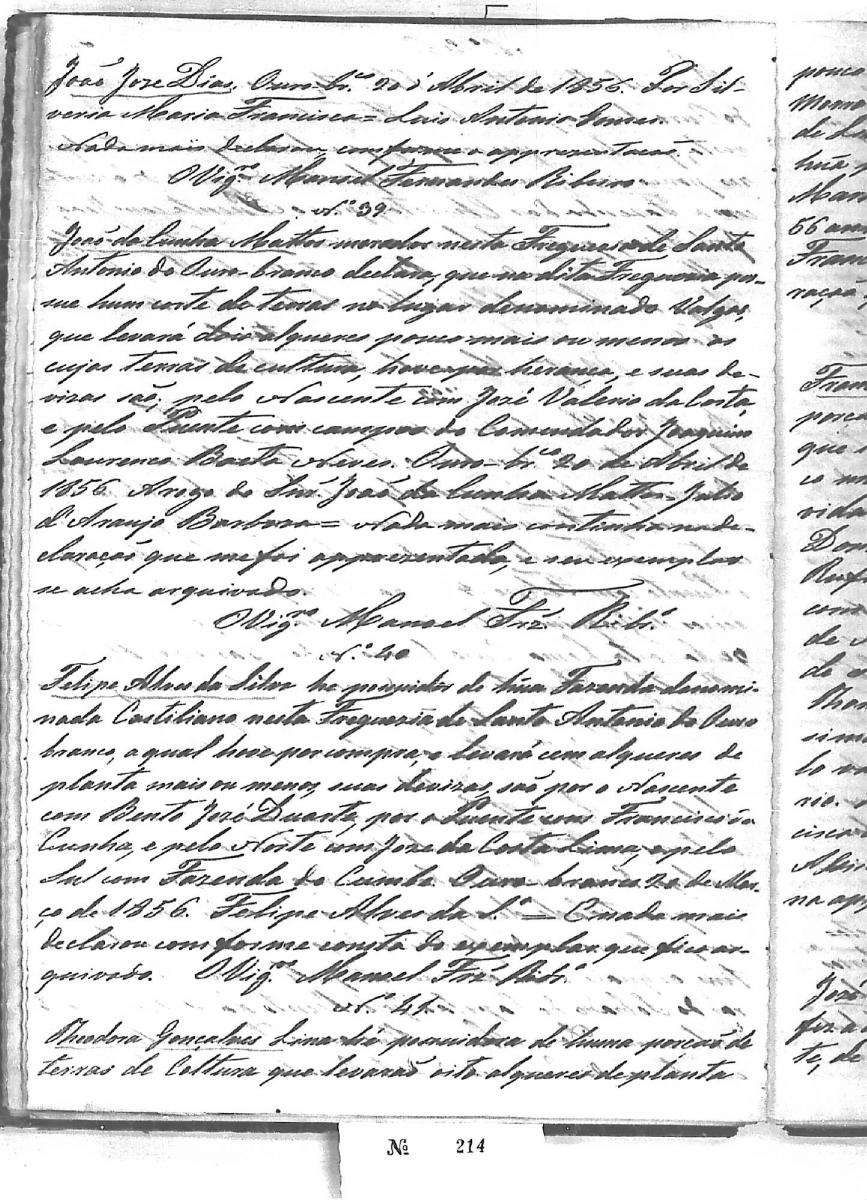 João Joze Dias. Ouro-br.co 20 d'Abril de 1856. Por Sil-
veria Maria Francisca = Luis Antonio Gomes.
Nada mais declarou, comforme a apprezentacaõ.
O Vig.ro Manoel Fernandes Ribeiro
N.º 39
João da Cunha Mattos morador nesta Freguesia de Santo
Antonio do Ouro-branco declara, que na dita Freguesia pos-
sue hum corte de terras no lugar denominado Valgas,
que levará dois alqueres pouco mais ou menos as
cujas terras de cultura, houve por herança, e suas de-
vizas saõ, pelo Nascente com José Valerio da Costa,
e pelo Puente com campos do Comendador Joaquim
Lourenco Baeta Neves. Ouro-br.co 20 de Abril de
1856. Arogo do Snr. João da Cunha Mattos Julio
d'Araujo Barboza = Nada mais continha na de-
claraçaõ que me foi apprezentada, e seu exemplar
se acha arquivado.
O Vig.ro Manoel Frz. Rib.º
N.º 40
Felipe Alves da Silva he possuidor de hũa Fazenda denomi-
nada Castiliano nesta Freguezia de Santo Antonio do Ouro
branco, a qual hove por compra, e levará cem alqueres de
planta mais ou menos, suas devizas, saõ por o Nascente
com Bento José Duarte, por o Puente com Francisco da
Cunha, e pelo Norte com Joze da Costa Lima, e pelo
Sul com Fazenda do Cumbe Ouro-branco 20 de Mar-
ço de 1856. Felipe Alves da S.ª = E nada mais
declarou comforme consta do exemplar que fico ar-
quivado. O Vig.ro Manoel Frz. Ribr.º
N.º 41.
Theodora Gonçalves Lima hé possuidora de huma porcaõ de
terras de Coltura que levaraõ oito alqueres de planta
Nº 214